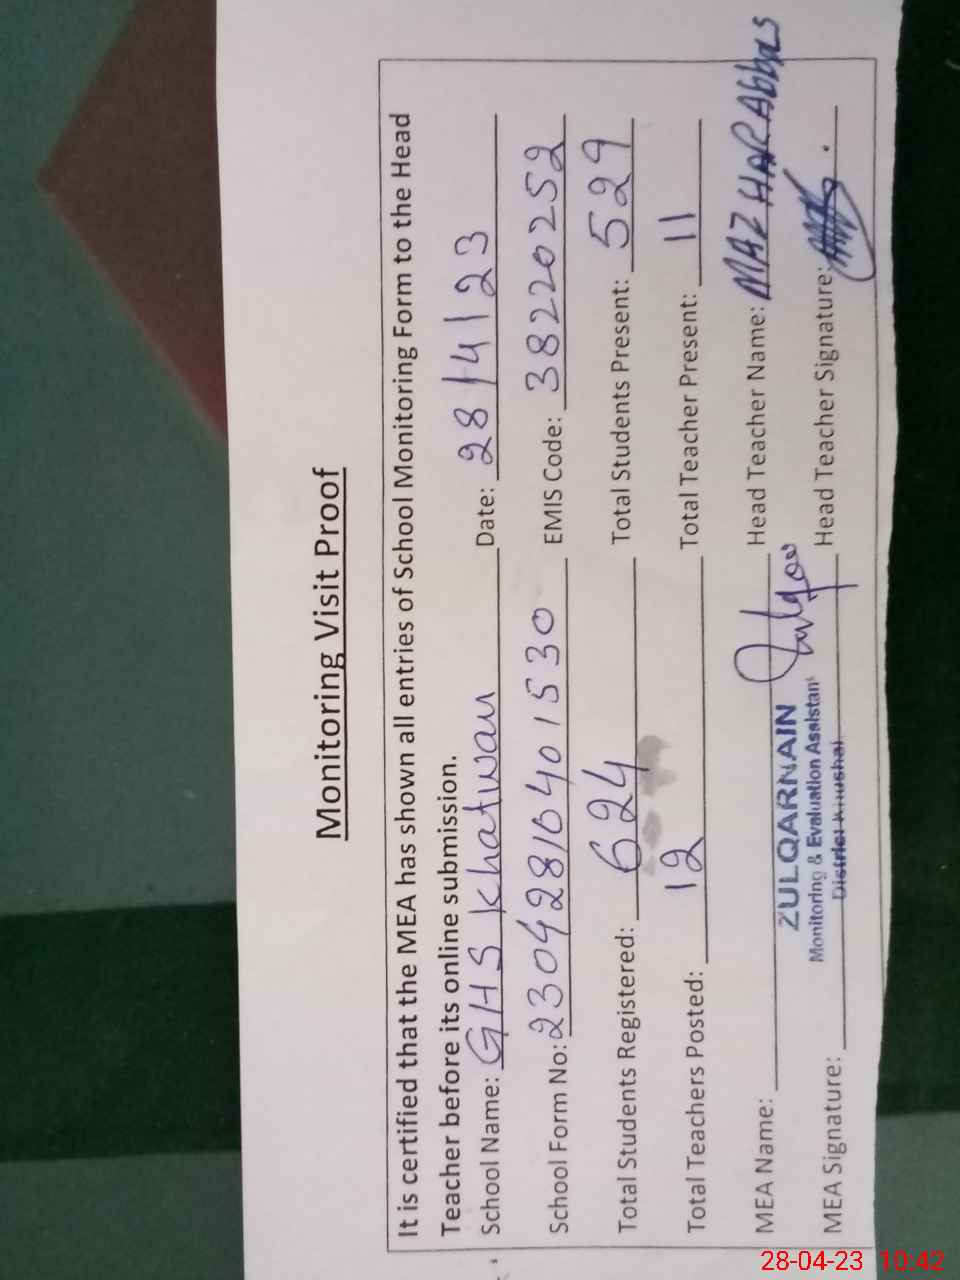 Monitoring Visit Proof
It is certified that the MEA has shown all entries of School Monitoring Form to the Head
Teacher before its online submission.
School Name: GHS Khatwan Date: 28/4/23
School Form No: 23042810401530 EMIS Code: 38220252
Total Students Registered: 624 Total Students Present: 529
Total Teachers Posted: 12 Total Teacher Present: 11
MEA Name: Head Teacher Name: MAZHAR Abbas
ZULQARNAIN
Monitoring & Evaluation Assistant
District Khushab
MEA Signature: Head Teacher Signature:
28-04-23 10:42